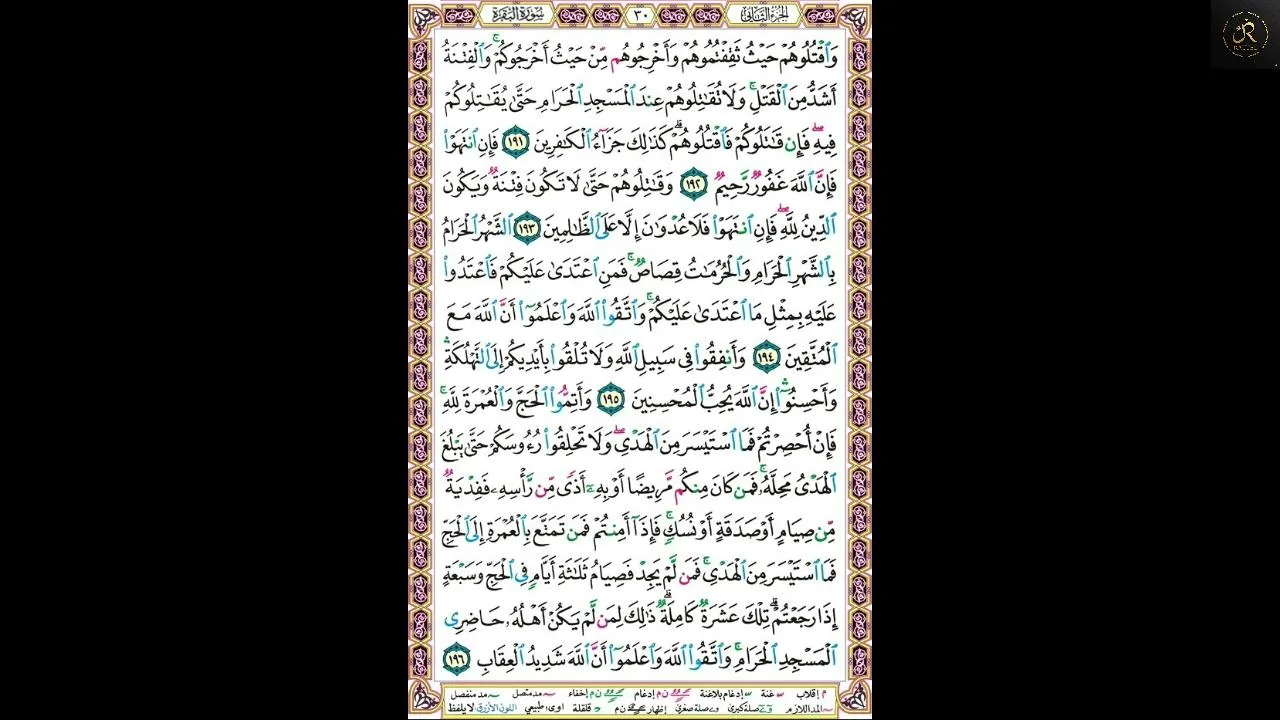 الجزء الثاني
٣٠
سورة البقرة
وَٱقْتُلُوهُمْ حَيْثُ ثَقِفْتُمُوهُمْ وَأَخْرِجُوهُم مِّنْ حَيْثُ أَخْرَجُوكُمْ ۚ وَٱلْفِتْنَةُ
أَشَدُّ مِنَ ٱلْقَتْلِ ۚ وَلَا تُقَٰتِلُوهُمْ عِندَ ٱلْمَسْجِدِ ٱلْحَرَامِ حَتَّىٰ يُقَٰتِلُوكُمْ
فِيهِ ۖ فَإِن قَٰتَلُوكُمْ فَٱقْتُلُوهُمْ ۗ كَذَٰلِكَ جَزَآءُ ٱلْكَٰفِرِينَ ١٩١ فَإِنِ ٱنتَهَوْا۟
فَإِنَّ ٱللَّهَ غَفُورٌ رَّحِيمٌ ١٩٢ وَقَٰتِلُوهُمْ حَتَّىٰ لَا تَكُونَ فِتْنَةٌ وَيَكُونَ
ٱلدِّينُ لِلَّهِ ۖ فَإِنِ ٱنتَهَوْا۟ فَلَا عُدْوَٰنَ إِلَّا عَلَى ٱلظَّٰلِمِينَ ١٩٣ ٱلشَّهْرُ ٱلْحَرَامُ
بِٱلشَّهْرِ ٱلْحَرَامِ وَٱلْحُرُمَٰتُ قِصَاصٌ ۚ فَمَنِ ٱعْتَدَىٰ عَلَيْكُمْ فَٱعْتَدُوا۟
عَلَيْهِ بِمِثْلِ مَا ٱعْتَدَىٰ عَلَيْكُمْ ۚ وَٱتَّقُوا۟ ٱللَّهَ وَٱعْلَمُوٓا۟ أَنَّ ٱللَّهَ مَعَ
ٱلْمُتَّقِينَ ١٩٤ وَأَنفِقُوا۟ فِى سَبِيلِ ٱللَّهِ وَلَا تُلْقُوا۟ بِأَيْدِيكُمْ إِلَى ٱلتَّهْلُكَةِ ۛ
وَأَحْسِنُوٓا۟ ۛ إِنَّ ٱللَّهَ يُحِبُّ ٱلْمُحْسِنِينَ ١٩٥ وَأَتِمُّوا۟ ٱلْحَجَّ وَٱلْعُمْرَةَ لِلَّهِ ۚ
فَإِنْ أُحْصِرْتُمْ فَمَا ٱسْتَيْسَرَ مِنَ ٱلْهَدْىِ ۖ وَلَا تَحْلِقُوا۟ رُءُوسَكُمْ حَتَّىٰ يَبْلُغَ
ٱلْهَدْىُ مَحِلَّهُۥ ۚ فَمَن كَانَ مِنكُم مَّرِيضًا أَوْ بِهِۦٓ أَذًى مِّن رَّأْسِهِۦ فَفِدْيَةٌ
مِّن صِيَامٍ أَوْ صَدَقَةٍ أَوْ نُسُكٍ ۚ فَإِذَآ أَمِنتُمْ فَمَن تَمَتَّعَ بِٱلْعُمْرَةِ إِلَى ٱلْحَجِّ
فَمَا ٱسْتَيْسَرَ مِنَ ٱلْهَدْىِ ۚ فَمَن لَّمْ يَجِدْ فَصِيَامُ ثَلَٰثَةِ أَيَّامٍ فِى ٱلْحَجِّ وَسَبْعَةٍ
إِذَا رَجَعْتُمْ ۗ تِلْكَ عَشَرَةٌ كَامِلَةٌ ۗ ذَٰلِكَ لِمَن لَّمْ يَكُنْ أَهْلُهُۥ حَاضِرِى
ٱلْمَسْجِدِ ٱلْحَرَامِ ۚ وَٱتَّقُوا۟ ٱللَّهَ وَٱعْلَمُوٓا۟ أَنَّ ٱللَّهَ شَدِيدُ ٱلْعِقَابِ ١٩٦
م إقلاب غنة إدغام بلاغنة ن م إدغام ن م إخفاء مد متصل مد منفصل
المد اللازم صلة كبرى صلة صغرى إظهار ن م قلقلة اوى طبيعي اللون الأزرق لا يلفظ